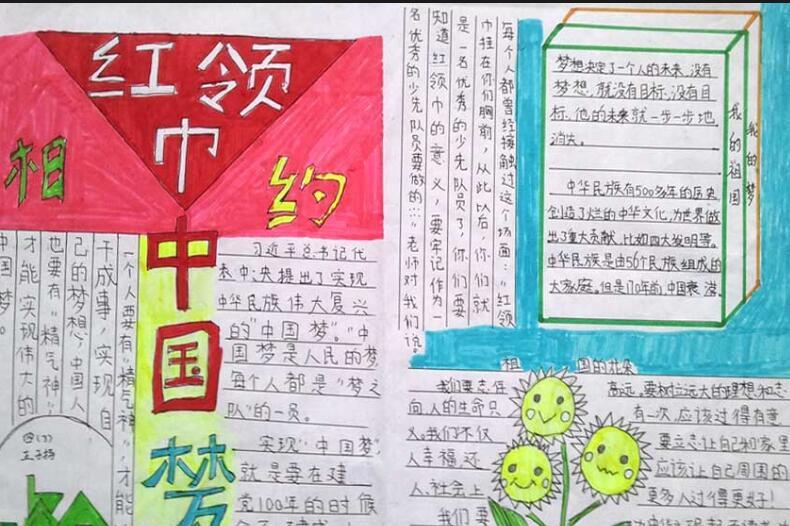 红领
巾
相
约
中
国
梦
一个人要有"精气神",才能
干成事,实现自
己的梦想,中国人
也要有"精气神"
才能实现伟大的
中国梦。
习近平总书记代
表中央提出了实现
中华民族伟大复兴
的"中国梦"。"中
国梦是人民的梦,
每个人都是"梦之
队"的一员。
实现"中国梦",
就是要在建
党100年的时候
每个人都曾经接触过这个场面:"红领
巾挂在你们胸前,从此以后,你们就
是一名优秀的少先队员了,你们要
知道红领巾的意义,要牢记作为一
名优秀的少先队员要做的……"老师对我们说。
梦想决定了一个人的未来,没有
梦想,就没有目标,没有目
标,他的未来就一步一步地
消失。
中华民族有500多年的历史
创造了灿烂的中华文化,为世界做
出了重大贡献,比如四大发明等。
中华民族是由56个民族组成的
大家庭。但是170年前,中国衰落
我的梦
我的祖国
祖国的花朵
我们要志存高远。要树立远大的理想和志
向,人的生命只有一次,应该过得有意
义。我们不仅要立志让自己和家里
人幸福,还应该让自己周围的
人、社会上更多人过得更好!
我们要